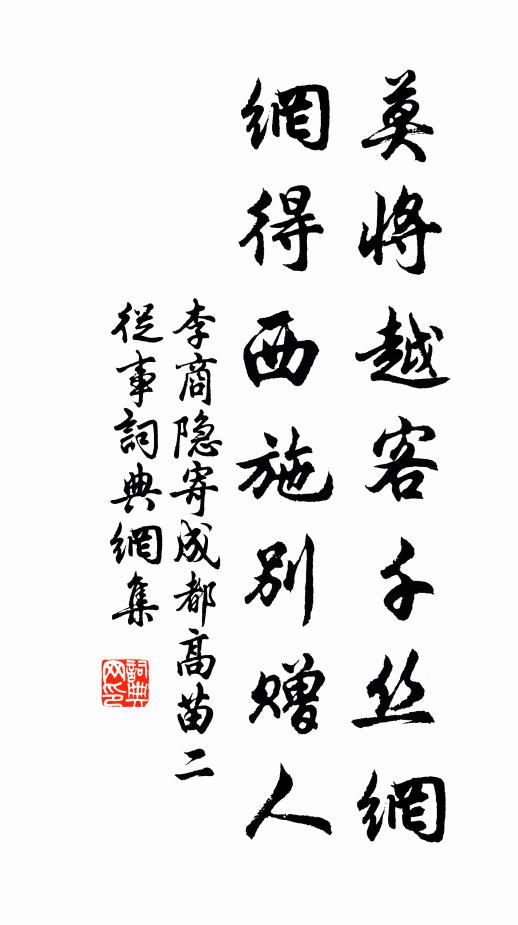 莫将越客千丝網
網得西施别赠人
李商隐寄成都高苗二
從事詞典網集
詞典网印